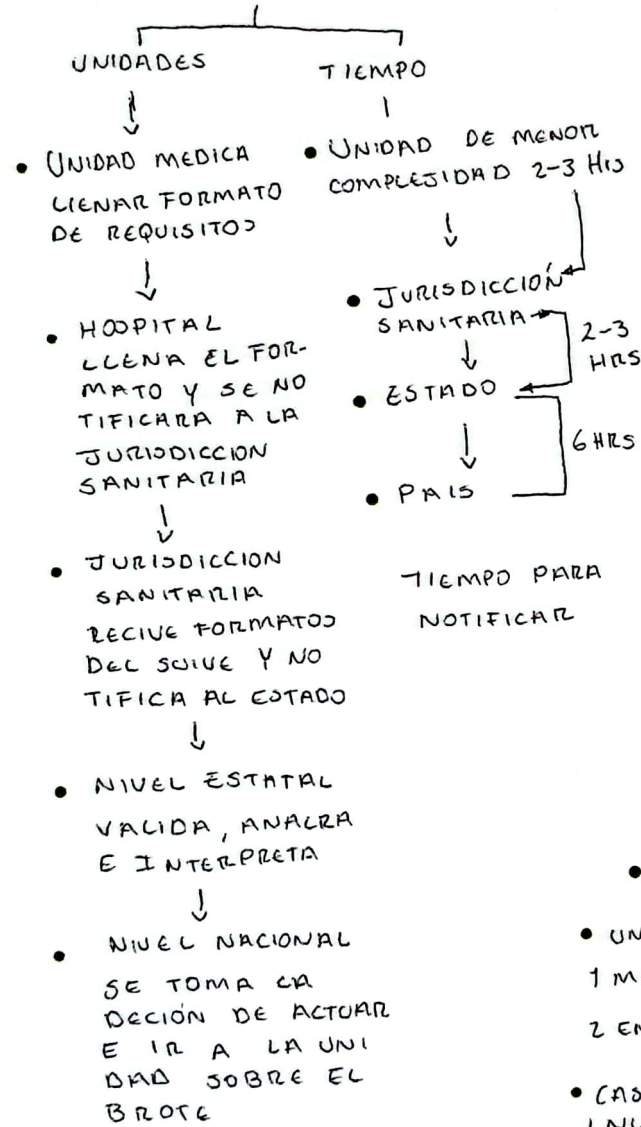 UNIDADES
• UNIDAD MEDICA
LLENAR FORMATO
DE REQUISITOS
• HOSPITAL
LLENA EL FOR-
MATO Y SE NO
TIFICARA A LA
JURISDICCION
SANITARIA
• JURISDICCION
SANITARIA
RECIVE FORMATOS
DEL SUIVE Y NO
TIFICA AL ESTADO
• NIVEL ESTATAL
VALIDA, ANALRA
E INTERPRETA
• NIVEL NACIONAL
SE TOMA LA
DECIÓN DE ACTUAR
E IR A LA UNI
DAD SOBRE EL
BROTE
TIEMPO
• UNIDAD DE MENOR
COMPLEJIDAD 2-3 Hrs
• JURISDICCIÓN
SANITARIA
2-3
HRS
• ESTADO
6 HRS
• PAIS
TIEMPO PARA
NOTIFICAR
•
• UN
1 M
2 EN
• CAS